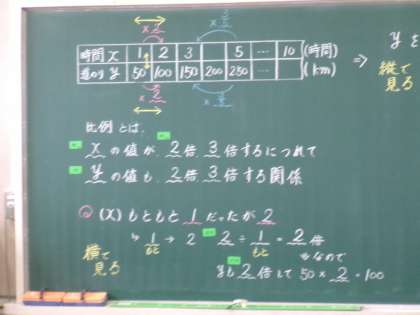 ×2
時間 x 1 2 3 5 … 10 (時間)
道のり y 50 100 150 200 250 … (km)
×2
⇒
yを
縦で
見る
比例とは、
xの値が、2倍 3倍するにつれて
yの値も、2倍 3倍する関係
(x) もともと1だったが2
↳ 1 → 2
もと
2 ÷ 1 = 2倍
もと
なので
yも2倍して 50 × 2 = 100
横で
見る